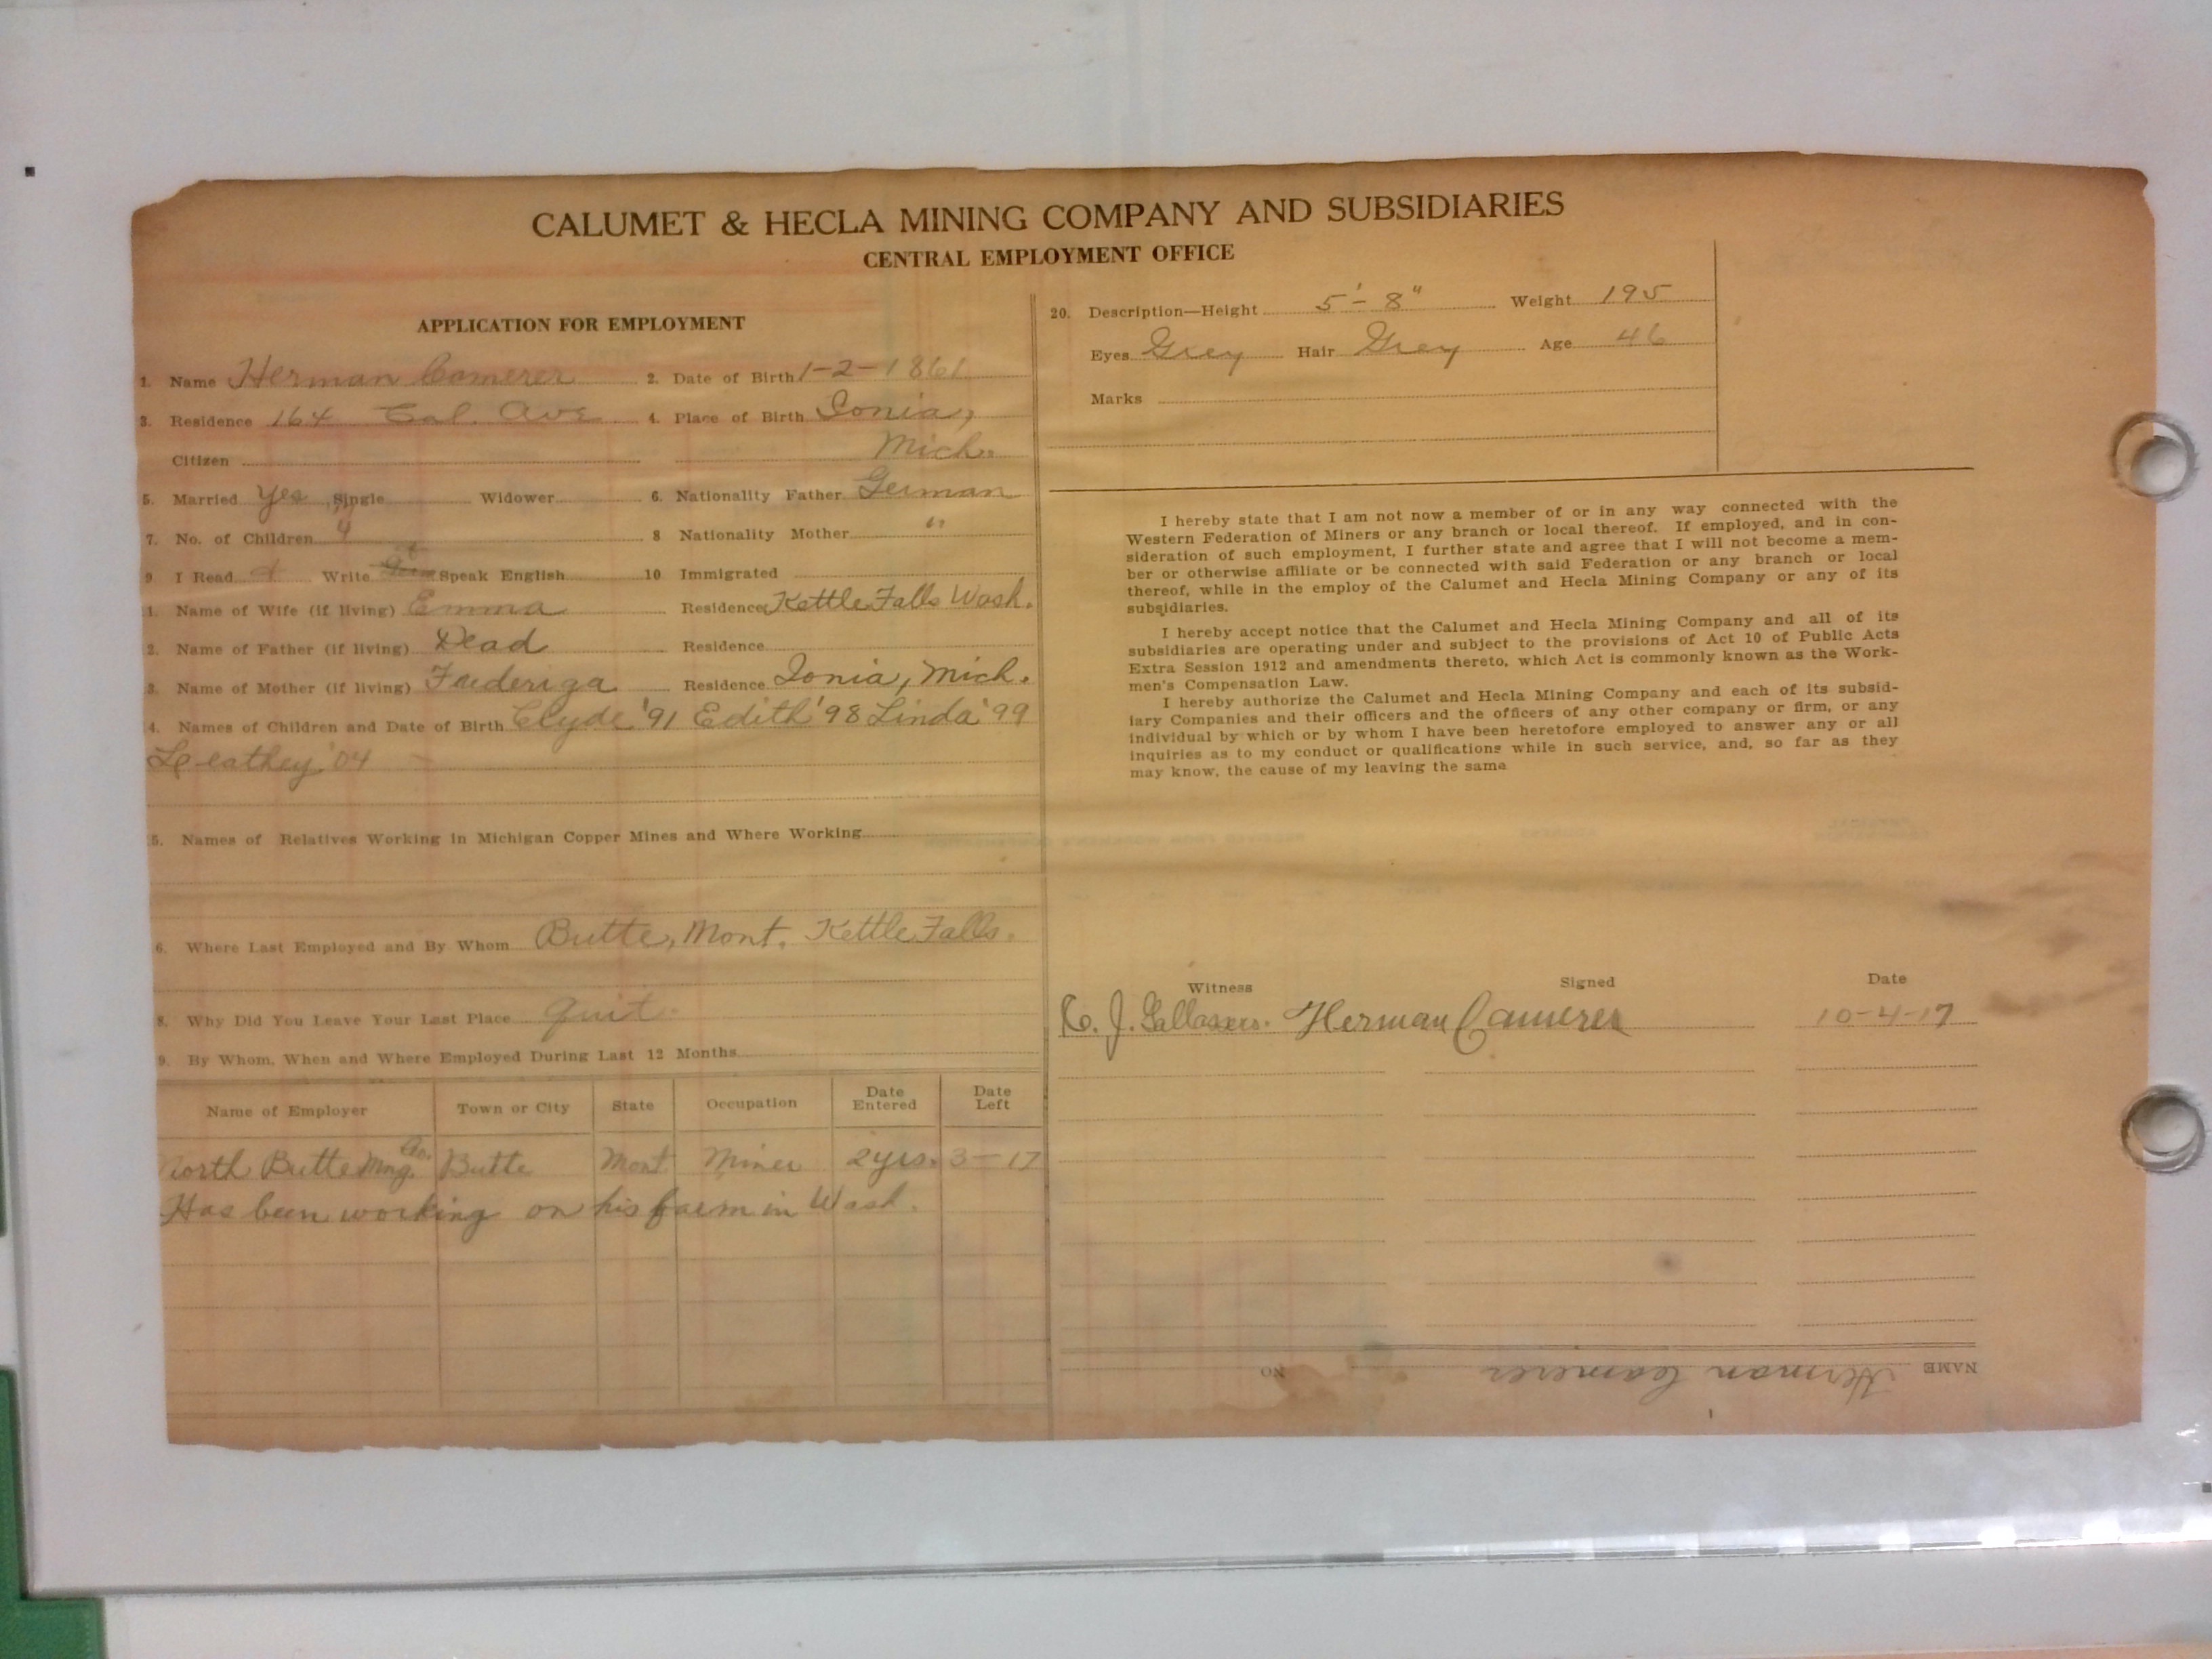 CALUMET & HECLA MINING COMPANY AND SUBSIDIARIES
CENTRAL EMPLOYMENT OFFICE
APPLICATION FOR EMPLOYMENT
1. Name Herman Camerer 2. Date of Birth 1-2-1861
3. Residence 164 Cal. Ave 4. Place of Birth Ionia,
Citizen Mich.
5. Married Yes Single Widower 6. Nationality Father German
7. No. of Children 4 8 Nationality Mother "
9. I Read Write Speak English 10 Immigrated
1. Name of Wife (if living) Emma Residence Kettle Falls Wash.
2. Name of Father (if living) Dead Residence
3. Name of Mother (if living) Residence Ionia, Mich.
4. Names of Children and Date of Birth Clyde '91 Edith '98 Linda '99
'04
5. Names of Relatives Working in Michigan Copper Mines and Where Working
6. Where Last Employed and By Whom Butte, Mont. Kettle Falls.
8. Why Did You Leave Your Last Place quit.
9. By Whom, When and Where Employed During Last 12 Months
Name of Employer Town or City State Occupation Date Entered Date Left
North Butte Mng. Co. Butte Mont Miner 2 yrs. 3-17
Has been working on his farm in Wash.
20. Description—Height 5'-8" Weight 195
Eyes Grey Hair Grey Age 46
Marks
I hereby state that I am not now a member of or in any way connected with the
Western Federation of Miners or any branch or local thereof. If employed, and in con-
sideration of such employment, I further state and agree that I will not become a mem-
ber or otherwise affiliate or be connected with said Federation or any branch or local
thereof, while in the employ of the Calumet and Hecla Mining Company or any of its
subsidiaries.
I hereby accept notice that the Calumet and Hecla Mining Company and all of its
subsidiaries are operating under and subject to the provisions of Act 10 of Public Acts
Extra Session 1912 and amendments thereto, which Act is commonly known as the Work-
men's Compensation Law.
I hereby authorize the Calumet and Hecla Mining Company and each of its subsid-
iary Companies and their officers and the officers of any other company or firm, or any
individual by which or by whom I have been heretofore employed to answer any or all
inquiries as to my conduct or qualifications while in such service, and, so far as they
may know, the cause of my leaving the same
Witness Signed Date
J. Herman Camerer 10-4-17
NAME Herman Camerer NO